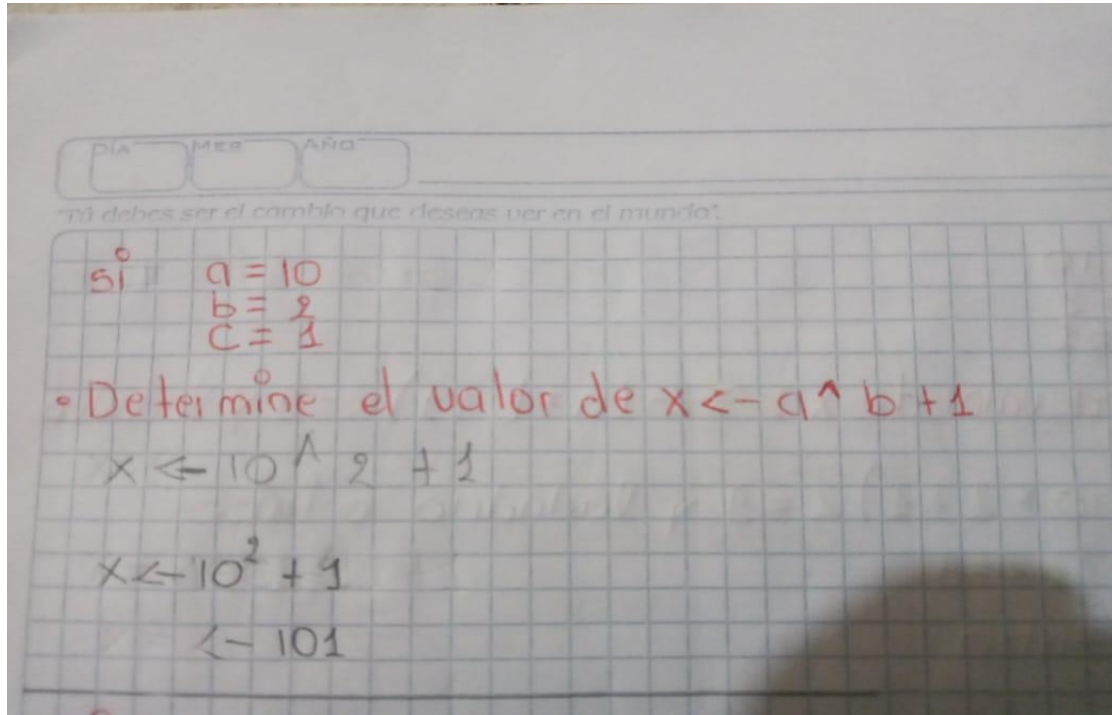 DÍA MES AÑO
"Tú debes ser el cambio que deseas ver en el mundo".
si a = 10
b = 2
C = 1
• Determine el valor de x <- a ^ b + 1
x <- 10 ^ 2 + 1
x <- 10² + 1
<- 101